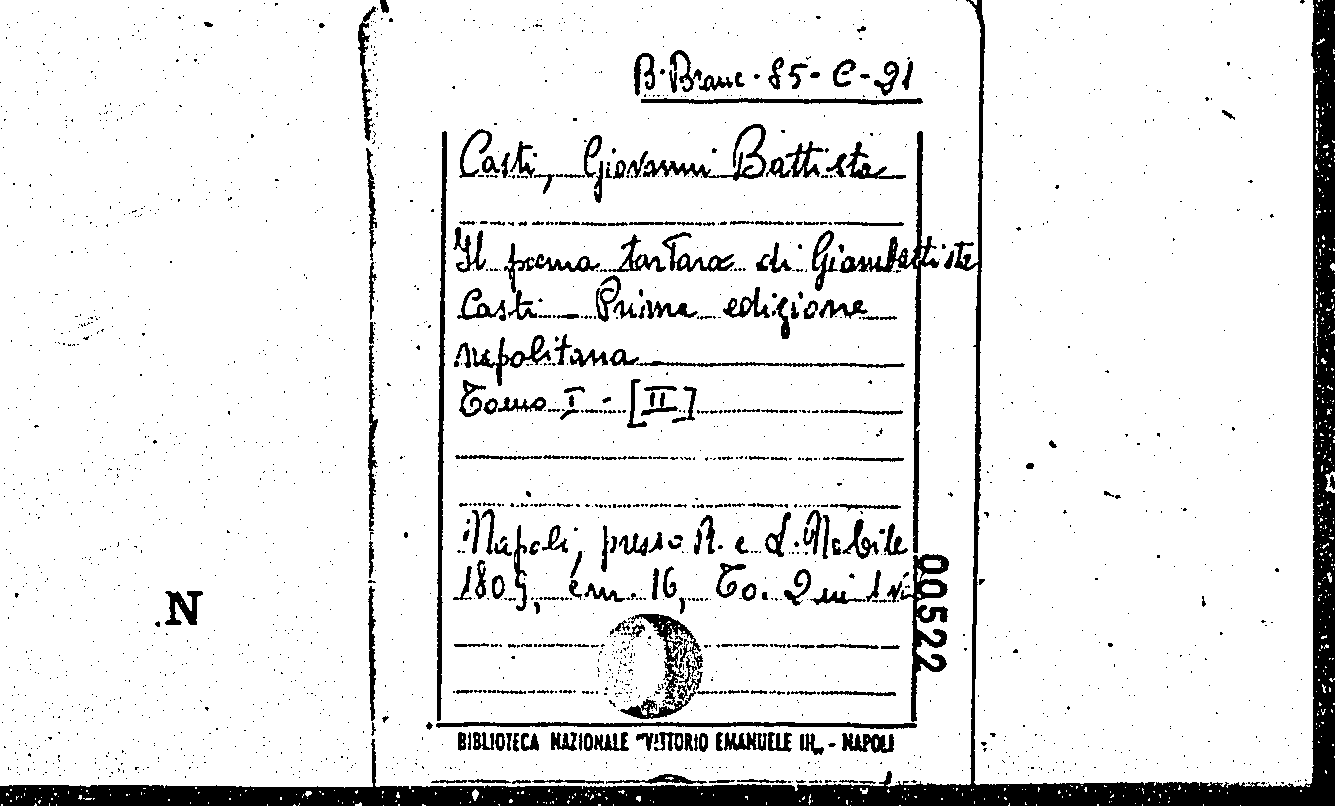 B. Branc. 85-C-21
Casti, Giovanni Battista
Il poema tartaro di Giambattista
Casti - Prima edizione
napolitana
Tomo I - [II]
Napoli, presso R. e L. Nobile
1809, cm. 16, To. 2 in 1 v.
00522
N
BIBLIOTECA NAZIONALE "VITTORIO EMANUELE III" - NAPOLI